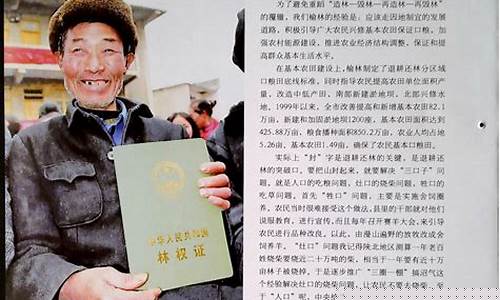 中华人民共和国
林权证
为了避免重蹈“造林—毁林—再造林—再毁林”
的覆辙，我们榆林的经验是：应该走因地制宜的发展
道路，积极引导广大农民兴修基本农田保证口粮，加
强农村能源建设，推进农业经济结构调整，保证和提
高群众基本生活水平。
在基本农田建设上，榆林制定了退耕还林分区域
口粮田底线标准，同时指导农民提高农田单位面积产
量，改造中低产田，南部新建淤地坝，北部兴修水
地。1999年以来，全市改善提高和新增基本农田82.1
万亩，新建和加固淤地坝1200座，基本农田面积达到
425.88万亩，粮食播种面积850.2万亩，农业人均占地
5.26亩，基本农田1.49亩，确保了农民基本口粮田。
实际上“封”字是退耕还林的关键，是退耕还林
的突破口。要把山封起来，就要解决“三口子”问
题，就是人口的吃粮问题，灶口的烧柴问题，牲口的
吃草问题。首先“牲口”问题，主要是实施舍饲圈
养。农民当时很难接受这个做法，县里的干部就对他们
说服教育，进行宣传，而且每年召开赛羊大会，来引导
农民进行品种改良。以此，由漫山遍野的放牧改成舍
饲养羊。“灶口”问题我记得陕北地区测算一年老百
姓烧柴要烧近二十万吨的柴，相当于一年要有近十万
亩林子被烧掉，于是逐步推广“三圈一棚”搞沼气这
个经验解决灶口的烧柴问题，让农民不要去烧柴。至
于“人口”呢，中央给